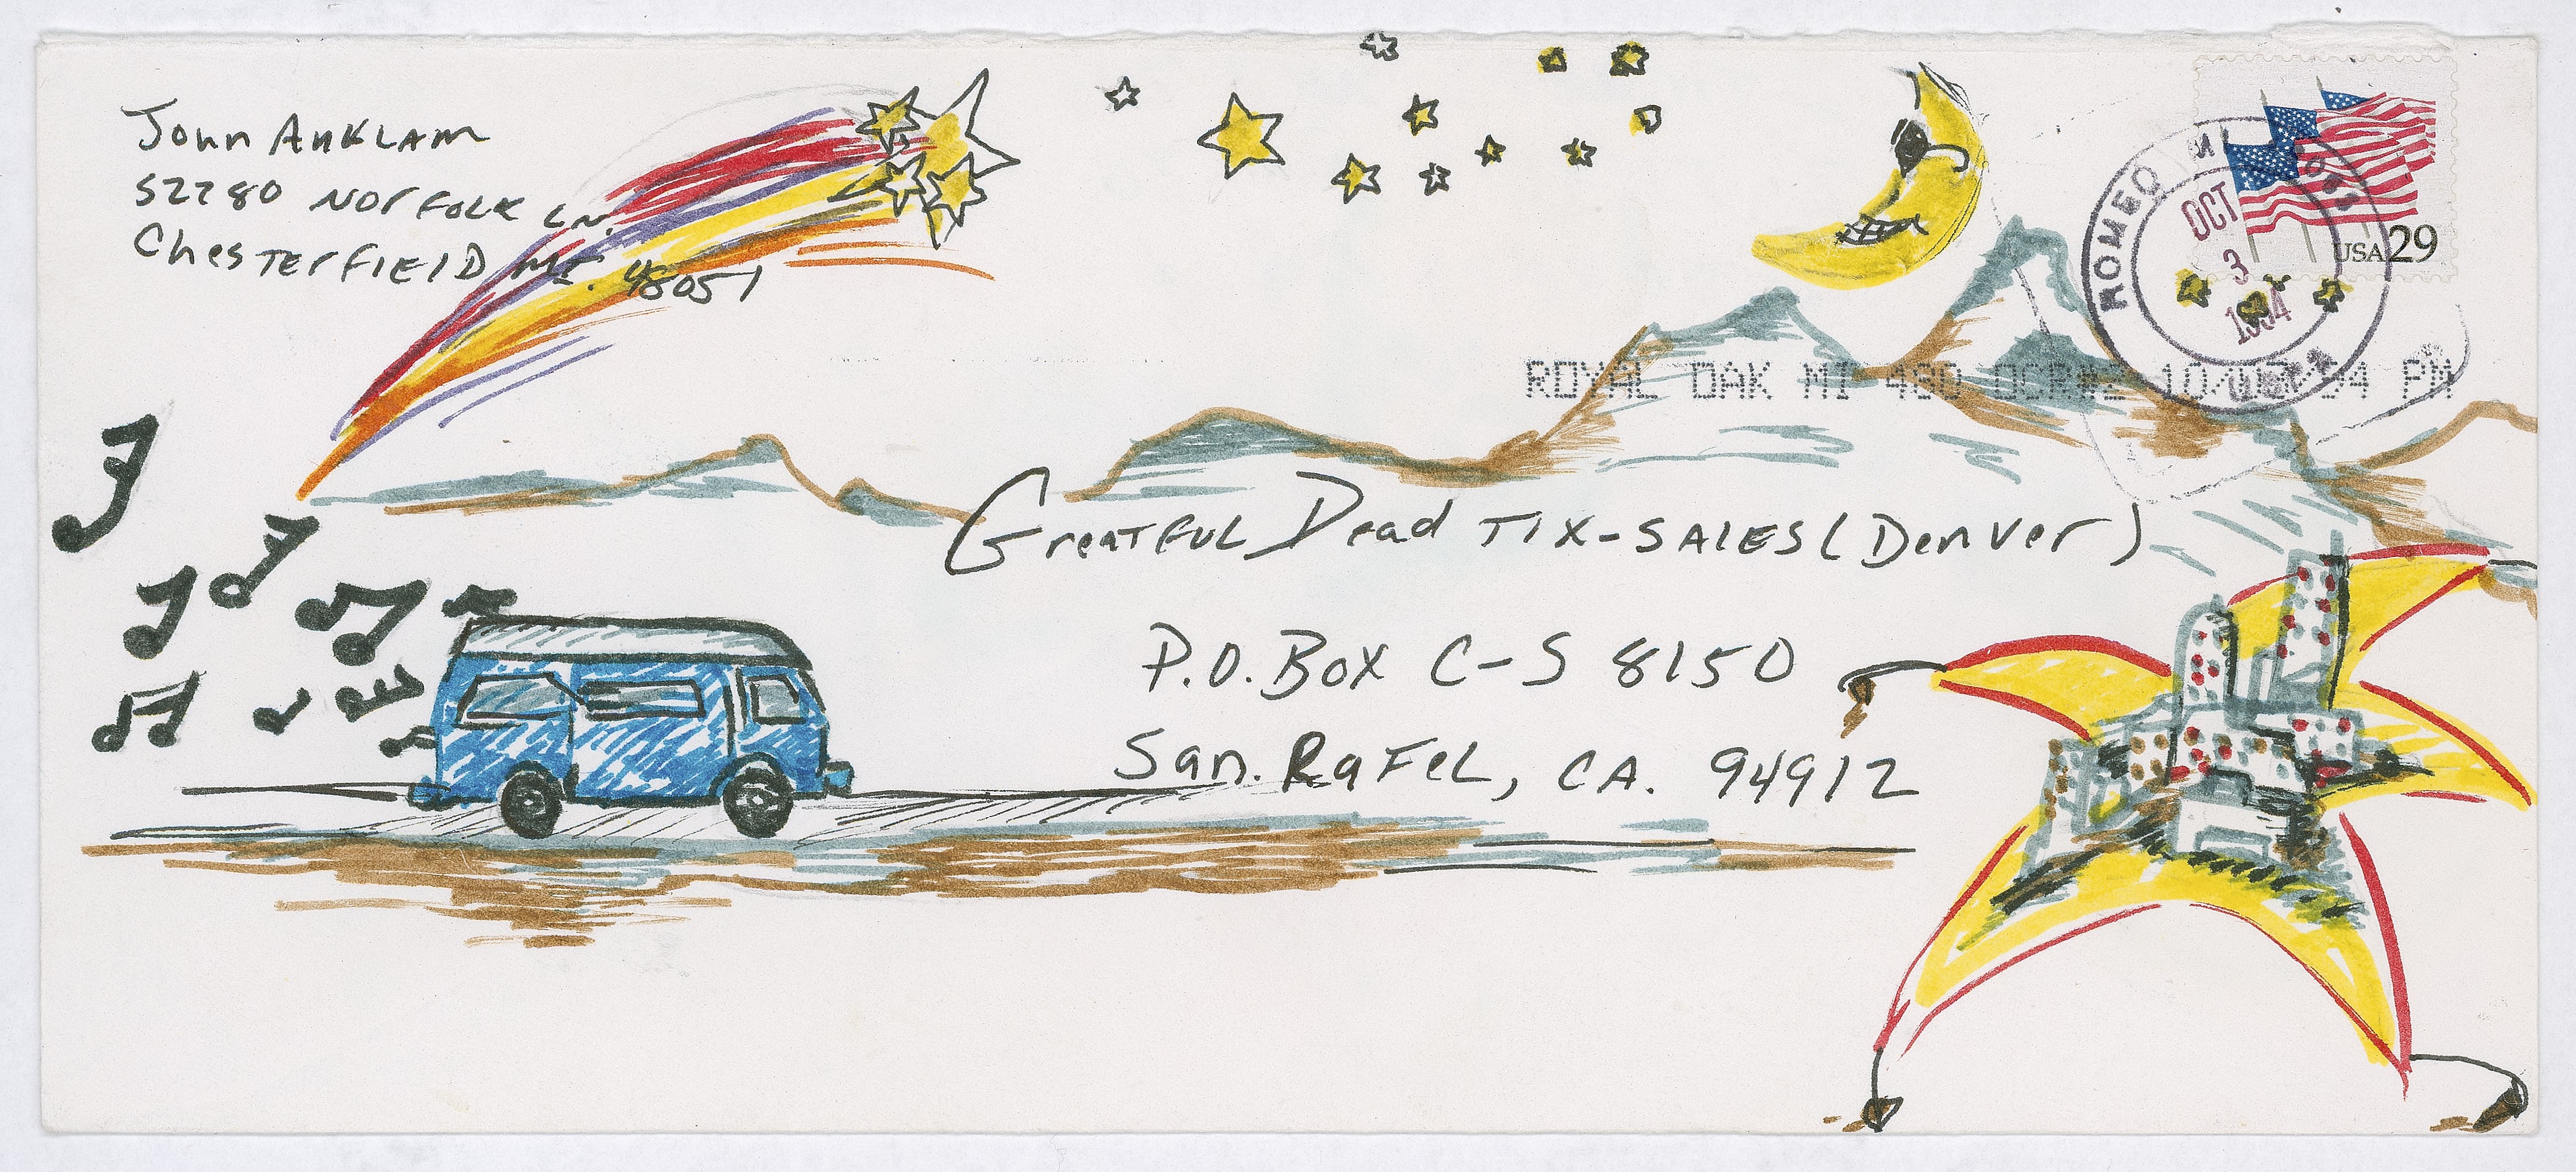 John Anklam
52280 Norfolk Ln.
Chesterfield MI. 48051
ROMEO MI
OCT
3
1994
USA 29
ROYAL OAK MI 480 OCR#2 10/ 94 PM
Greatful Dead Tix-Sales (Denver)
P.O. Box C-S 8150
San. Rafel, CA. 94912